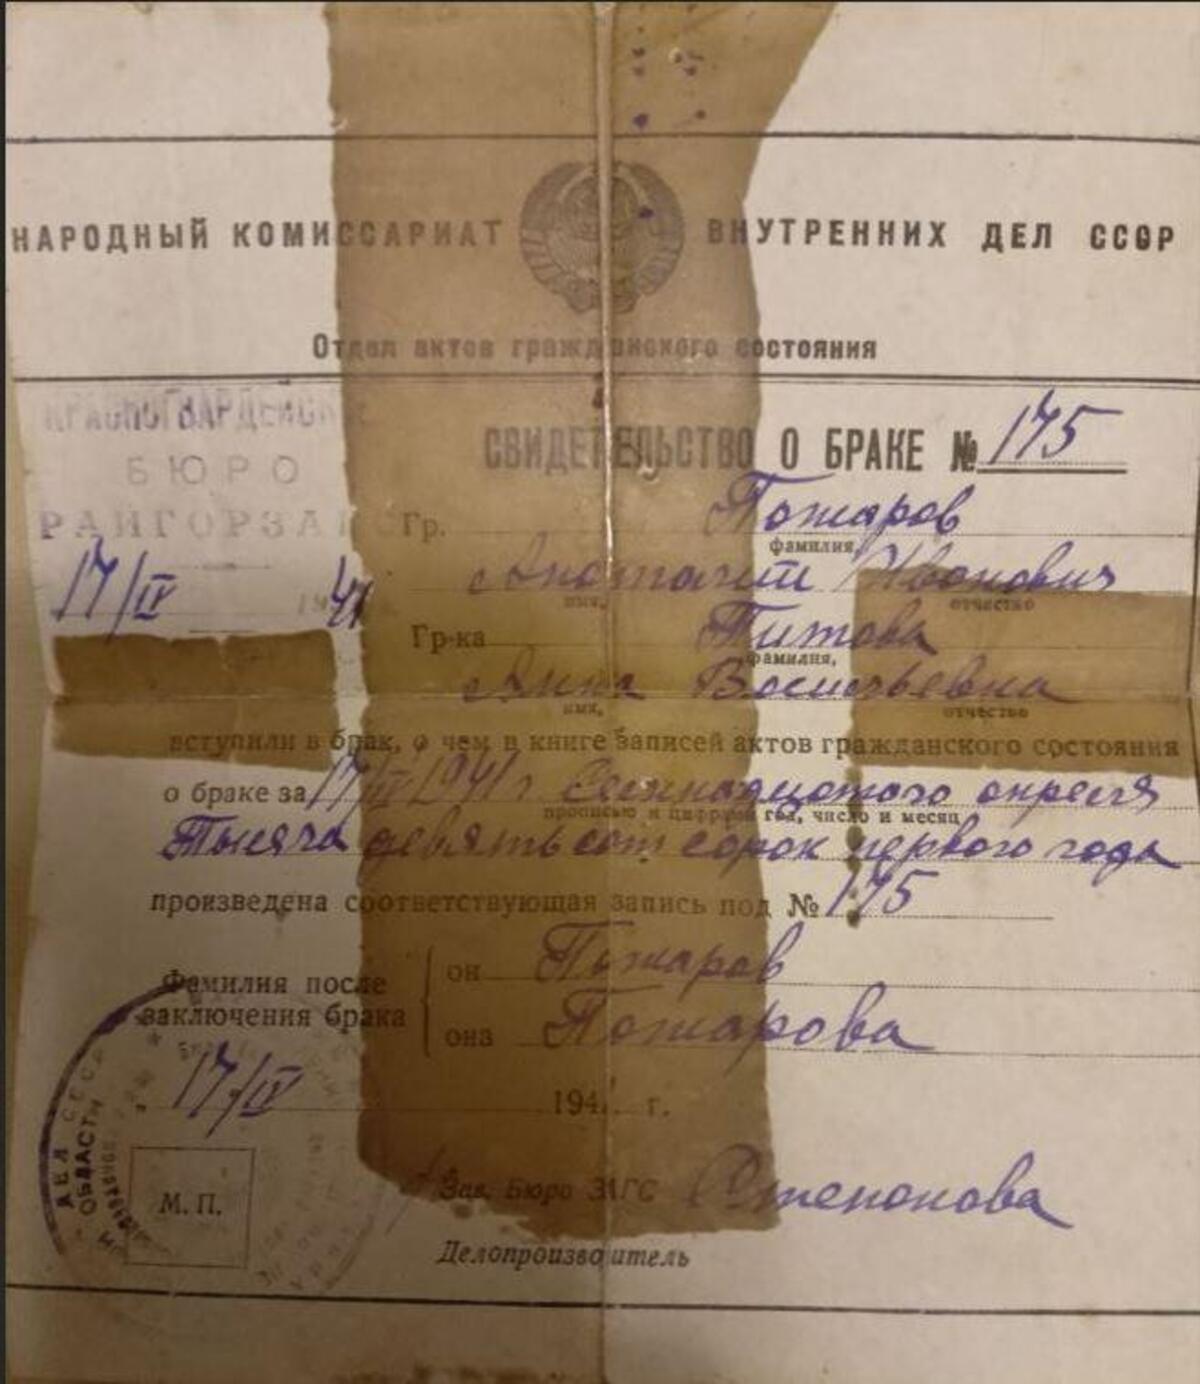 НАРОДНЫЙ КОМИССАРИАТ ВНУТРЕННИХ ДЕЛ СССР
Отдел актов гражданского состояния
КРАСНОГВАРДЕЙСК
БЮРО
РАЙГОРЗАГС
17/IV 1941
СВИДЕТЕЛЬСТВО О БРАКЕ № 175
Гр. Пожаров
фамилия
Анатолий Иванович
имя, отчество
Гр-ка Титова
фамилия,
Анна Васильевна
имя, отчество
вступили в брак, о чем в книге записей актов гражданского состояния
о браке за 17/IV 1941 г Семнадцатого апреля
прописью и цифрами год, число и месяц
Тысяча девятьсот сорок первого года
произведена соответствующая запись под № 175
Фамилия после заключения брака
он Пожаров
она Пожарова
17/IV 194 г.
М. П.
ДЕЛ СССР
ОБЛАСТИ
Зав. Бюро ЗАГС Степанова
Делопроизводитель